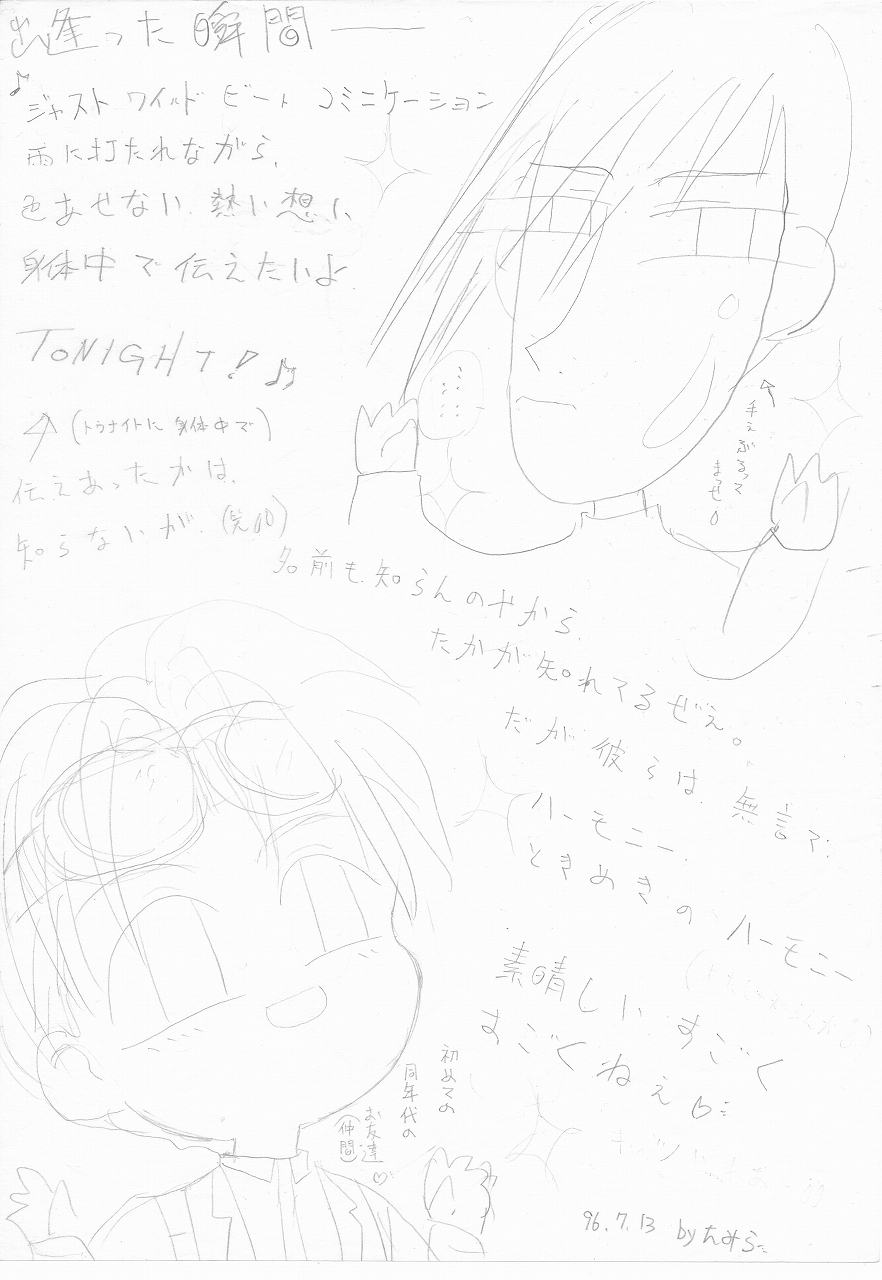 出逢った瞬間――
♪ジャスト ワイルド ビート コミニケーション
雨に打たれながら、
色あせない熱い想い
身体中で伝えたいよ
TONIGHT! ♪
(トゥナイトに身体中で)
伝えあったかは、
知らないが、(笑)
手えふるって
まっせ
名前も知らんのやから、
たかが知れてるぜえ。
だが彼らは、無言で
ハーモニー、
ときめきのハーモニー
素晴しいすごく
すごくねえ
初めての
同年代の
お友達
(仲間)
96.7.13 by たみら